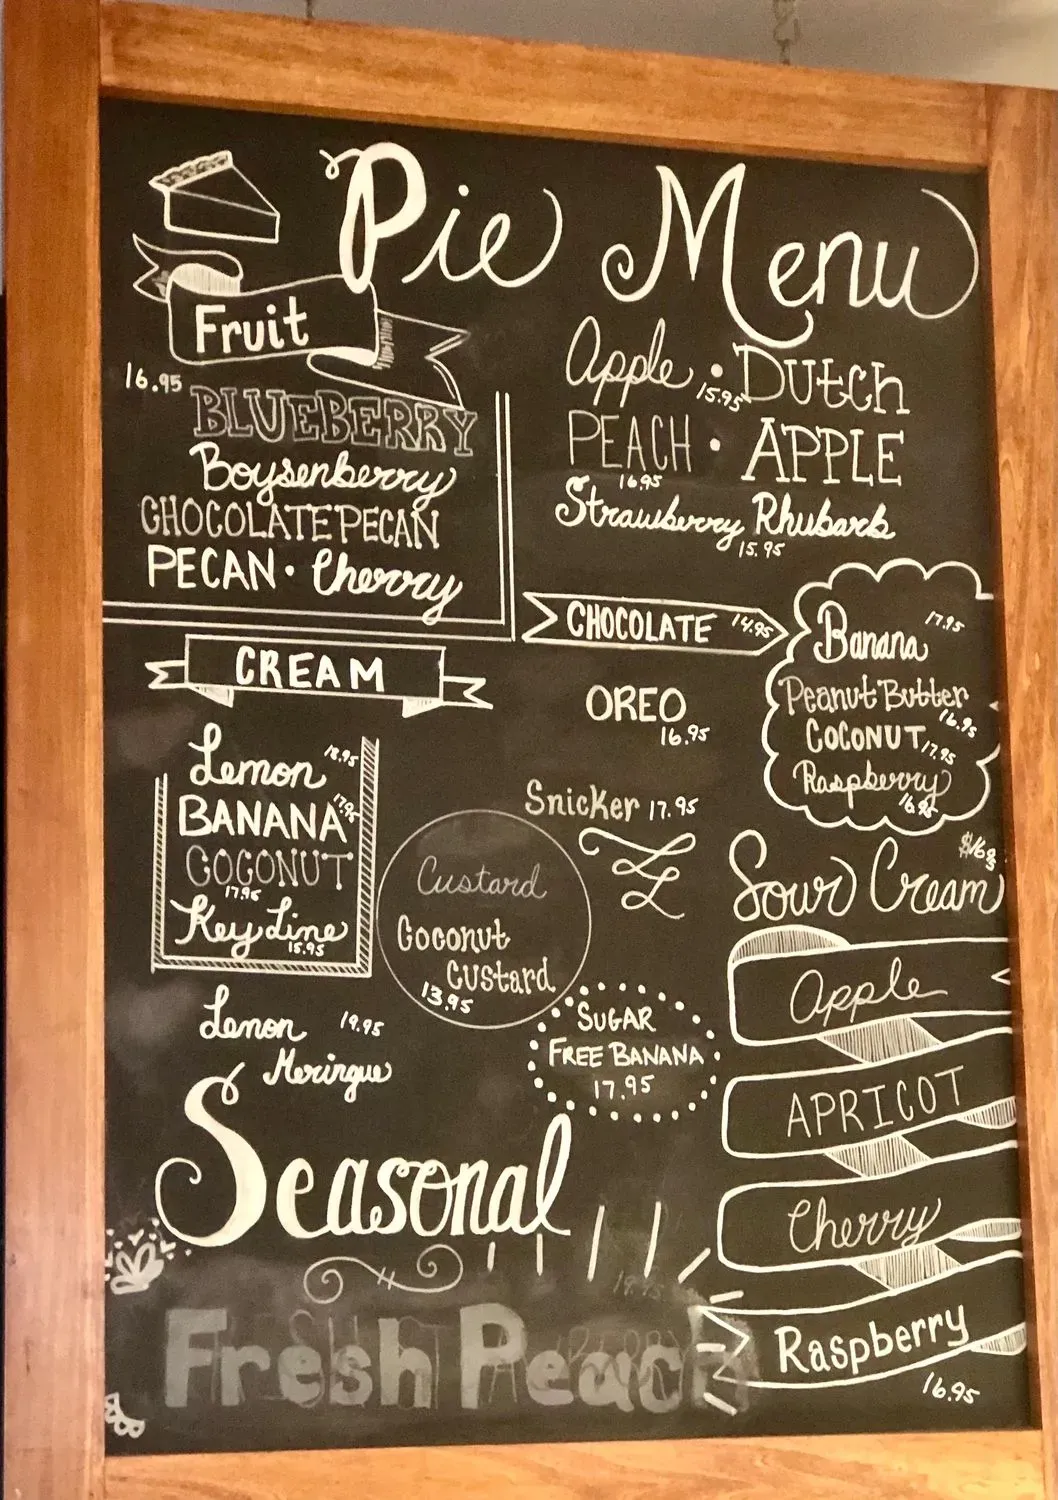 Pie Menu
Fruit
16.95
BLUEBERRY
Boysenberry
CHOCOLATE PECAN
PECAN • Cherry
Apple • DUtCh
15.95
PEACH • APPLE
16.95
Strawberry Rhubarb
15.95
CREAM
Lemon
BANANA
17.95
COCONUT
17.95
Key Lime
15.95
Lemon 19.95
Meringue
CHOCOLATE 14.95
OREO
16.95
Snicker 17.95
Banana 17.95
Peanut Butter
16.95
COCONUT 17.95
Raspberry
16.95
Custard
Coconut
Custard
13.95
SUGAR
FREE BANANA
17.95
Sour Cream
Apple
APRICOT
Cherry
Raspberry
16.95
Seasonal
Fresh Peach